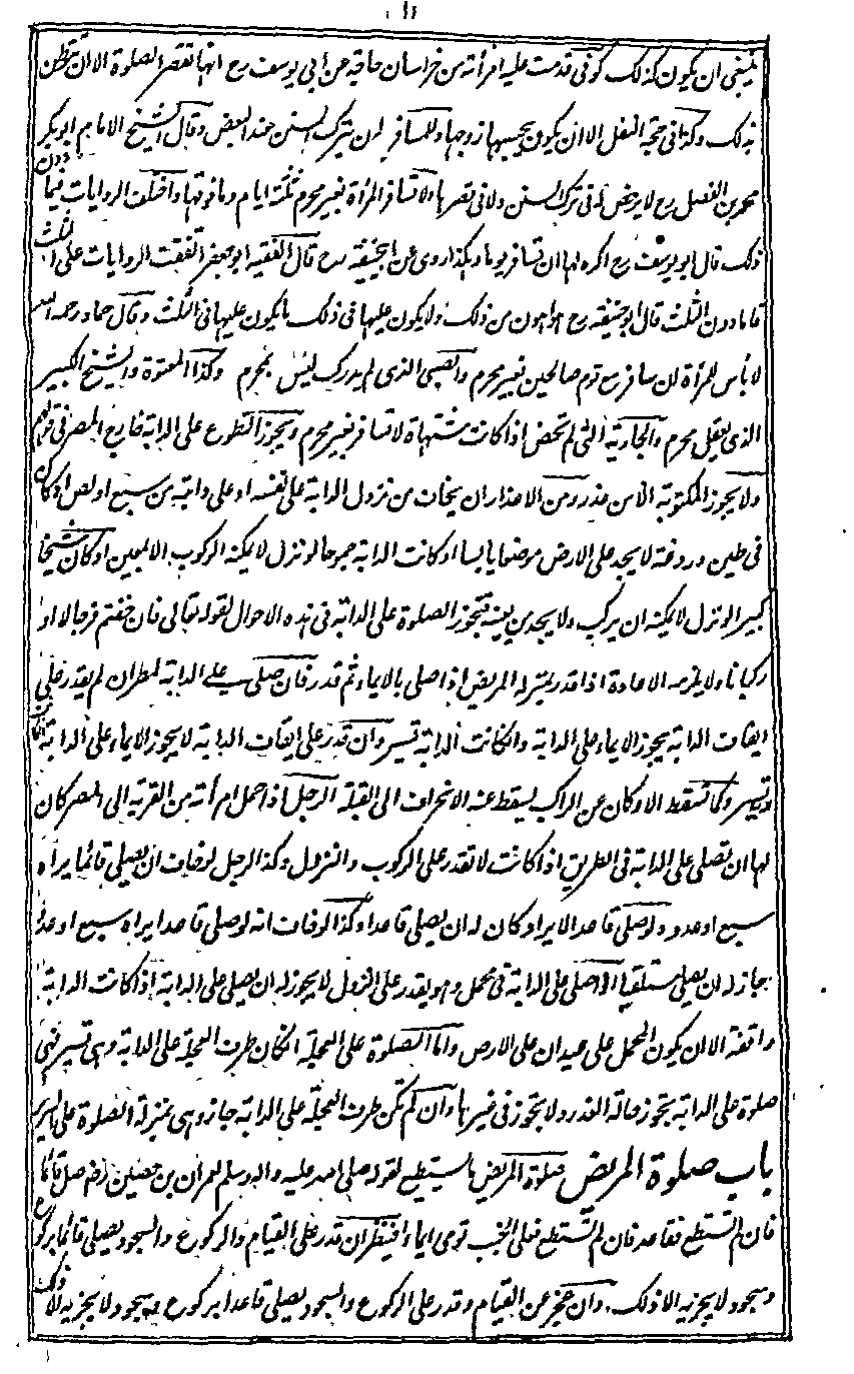 ينبغى ان يكون كذلك كوفى قدمت عليه امرأته من خراسان حاجة عن ابى يوسف رح انها تقصر الصلوة الا ان توطن
بذلك وكذا فى حجة النفل الا ان يكون يحبسها زوجها وللمسافر ان يترك السنن عند البعض وقال الشيخ الامام ابو بكر
محمد بن الفضل رح لا يرخص له فى ترك السنن ولا فى قصرها ولا تسافر المرأة بغير محرم ثلثة ايام وما فوقها واختلفت الروايات فيما دون
ذلك قال ابو يوسف رح اكره لها ان تسافر يوما وهكذا روى عن ابى حنيفة رح قال الفقيه ابو جعفر اتفقت الروايات على الثلث
فاما دون الثلث قال ابو حنيفة رح هو اهون من ذلك ولا يكون عليها فى ذلك ما يكون عليها فى الثلث وقال حماد رحمه الله
لا بأس للمرأة ان تسافر مع قوم صالحين بغير محرم والصبى الذى لم يدرك ليس بمحرم وكذا المعتوه والشيخ الكبير
الذى يعقل محرم والجارية التى لم تحض اذا كانت مشتهاة لا تسافر بغير محرم ويجوز التطوع على الدابة خارج المصر فى قولهم
ولا يجوز المكتوبة الا من عذر ومن الاعذار ان يخاف من نزول الدابة على نفسه او على دابته من سبع او لص او كان
فى طين وردغة لا يجد على الارض موضعا يابسا او كانت الدابة جموحا لو نزل لا يمكنه الركوب الا بمعين او كان شيخا
كبيرا لو نزل لا يمكنه ان يركب ولا يجد من يعينه فتجوز الصلوة على الدابة فى هذه الاحوال لقوله تعالى فان خفتم فرجالا او
ركبانا ولا يلزمه الاعادة اذا قدر بمنزلة المريض اذا صلى بالايماء ثم قدر فان صلى على الدابة لمطر ان لم يقدر على
ايقاف الدابة يجوز الايماء على الدابة وان كانت الدابة تسير وان قدر على ايقاف الدابة لا يجوز الايماء على الدابة
وتسير وكما تسقط الاركان عن الراكب يسقط عنه الانحراف الى القبلة الرجل اذا حمل امرأته من القرية الى المصر كان
لها ان تصلى على الدابة فى الطريق اذا كانت لا تقدر على الركوب والنزول وكذا الرجل لو خاف ان يصلى قائما يراه
سبع او عدو ولو صلى قاعدا لا يراه كان له ان يصلى قاعدا وكذا لو خاف انه لو صلى قاعدا يراه سبع او عدو
جاز له ان يصلى مستلقيا اذا صلى على الدابة فى محمل وهو يقدر على النزول لا يجوز له ان يصلى على الدابة اذا كانت الدابة
واقفة الا ان يكون المحمل على عيدان على الارض واما الصلوة على العجلة ان كان طرف العجلة على الدابة وهى تسير فهى
صلوة على الدابة تجوز حالة العذر ولا تجوز فى غيرها وان لم تكن طرف العجلة على الدابة جاز وهى بمنزلة الصلوة على السرير
باب صلوة المريض صلوة المريض ما يستطيع لقوله صلى الله عليه واله وسلم لعمران بن حصين رضـ صل قائما
فان لم تستطع فقاعدا فان لم تستطع فعلى الجنب تومى ايماء فينظر ان قدر على القيام والركوع والسجود يصلى قائما بركوع
وسجود لا يجزيه الا ذلك وان عجز عن القيام وقدر على الركوع والسجود يصلى قاعدا بركوع وسجود ولا يجزيه الا ذلك